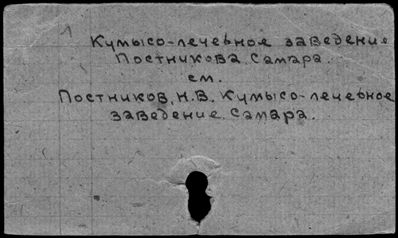 Кумысо-лечебное заведение
Постникова. Самара.
см.
Постников, Н.В. Кумысо-лечебное
заведение. Самара.